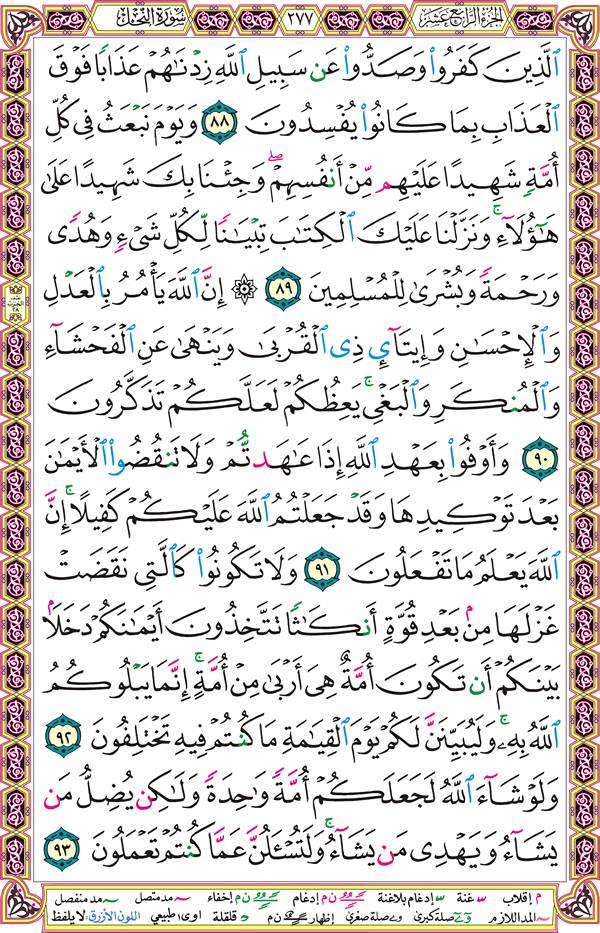 الجزء الرابع عشر
٢٧٧
سورة النحل
ٱلَّذِينَ كَفَرُوا۟ وَصَدُّوا۟ عَن سَبِيلِ ٱللَّهِ زِدْنَٰهُمْ عَذَابًا فَوْقَ
ٱلْعَذَابِ بِمَا كَانُوا۟ يُفْسِدُونَ ٨٨ وَيَوْمَ نَبْعَثُ فِى كُلِّ
أُمَّةٍ شَهِيدًا عَلَيْهِم مِّنْ أَنفُسِهِمْ ۖ وَجِئْنَا بِكَ شَهِيدًا عَلَىٰ
هَٰٓؤُلَآءِ ۚ وَنَزَّلْنَا عَلَيْكَ ٱلْكِتَٰبَ تِبْيَٰنًا لِّكُلِّ شَىْءٍ وَهُدًى
وَرَحْمَةً وَبُشْرَىٰ لِلْمُسْلِمِينَ ٨٩ ۞ إِنَّ ٱللَّهَ يَأْمُرُ بِٱلْعَدْلِ
وَٱلْإِحْسَٰنِ وَإِيتَآئِ ذِى ٱلْقُرْبَىٰ وَيَنْهَىٰ عَنِ ٱلْفَحْشَآءِ
وَٱلْمُنكَرِ وَٱلْبَغْىِ ۚ يَعِظُكُمْ لَعَلَّكُمْ تَذَكَّرُونَ
٩٠ وَأَوْفُوا۟ بِعَهْدِ ٱللَّهِ إِذَا عَٰهَدتُّمْ وَلَا تَنقُضُوا۟ ٱلْأَيْمَٰنَ
بَعْدَ تَوْكِيدِهَا وَقَدْ جَعَلْتُمُ ٱللَّهَ عَلَيْكُمْ كَفِيلًا ۚ إِنَّ
ٱللَّهَ يَعْلَمُ مَا تَفْعَلُونَ ٩١ وَلَا تَكُونُوا۟ كَٱلَّتِى نَقَضَتْ
غَزْلَهَا مِنۢ بَعْدِ قُوَّةٍ أَنكَٰثًا تَتَّخِذُونَ أَيْمَٰنَكُمْ دَخَلًۢا
بَيْنَكُمْ أَن تَكُونَ أُمَّةٌ هِىَ أَرْبَىٰ مِنْ أُمَّةٍ ۚ إِنَّمَا يَبْلُوكُمُ
ٱللَّهُ بِهِۦ ۚ وَلَيُبَيِّنَنَّ لَكُمْ يَوْمَ ٱلْقِيَٰمَةِ مَا كُنتُمْ فِيهِ تَخْتَلِفُونَ ٩٢
وَلَوْ شَآءَ ٱللَّهُ لَجَعَلَكُمْ أُمَّةً وَٰحِدَةً وَلَٰكِن يُضِلُّ مَن
يَشَآءُ وَيَهْدِى مَن يَشَآءُ ۚ وَلَتُسْـَٔلُنَّ عَمَّا كُنتُمْ تَعْمَلُونَ ٩٣
م إقلاب غنة إدغام بلاغنة ن م إدغام ن م إخفاء مد متصل مد منفصل
المد اللازم صلة كبرى صلة صغرى إظهار ن م قلقلة اوى طبيعي اللون الأزرق لا يلفظ